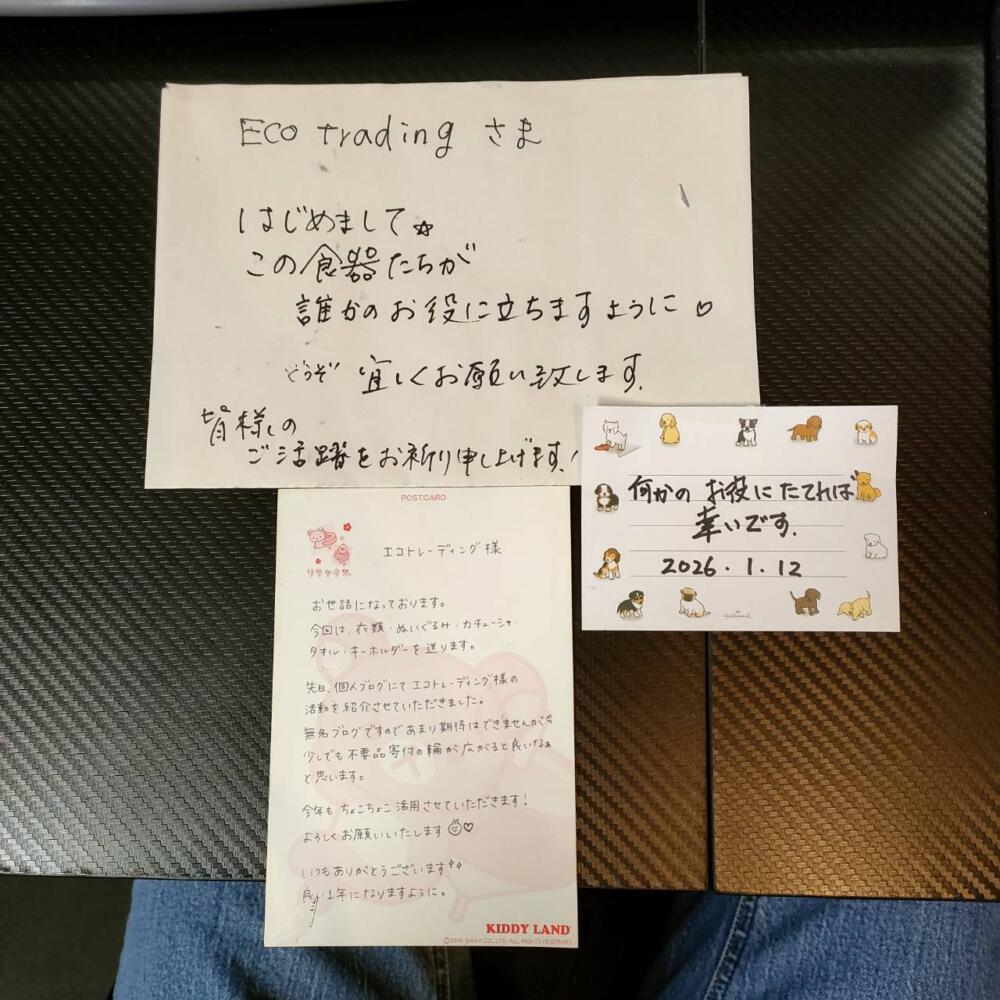 Eco trading さま
はじめまして☆
この食器たちが
誰かのお役に立ちますように♡
どうぞ 宜しくお願い致します。
皆様の
ご活躍をお祈り申し上げます!
何かの お役にたてれば
幸いです。
2026.1.12
Hallmark
POSTCARD
リラックマ
エコトレーディング様
お世話になっております。
今回は、衣類・ぬいぐるみ・カチューシャ・
タオル・キーホルダーを送ります。
先日、個人ブログにてエコトレーディング様の
活動を紹介させていただきました。
無名ブログですのであまり期待はできませんが
少しでも不要品寄付の輪が広がると良いなぁ
と思います。
今年も ちょこちょこ 活用させていただきます!
よろしくお願いいたします♡
いつもありがとうございます
良い1年になりますように。
KIDDY LAND
©2010 SAN-X CO., LTD. ALL RIGHTS RESERVED.